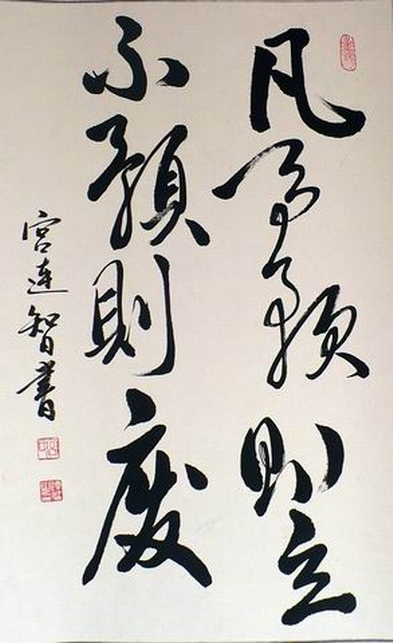 凡事預則立
不預則廢
宫連智書